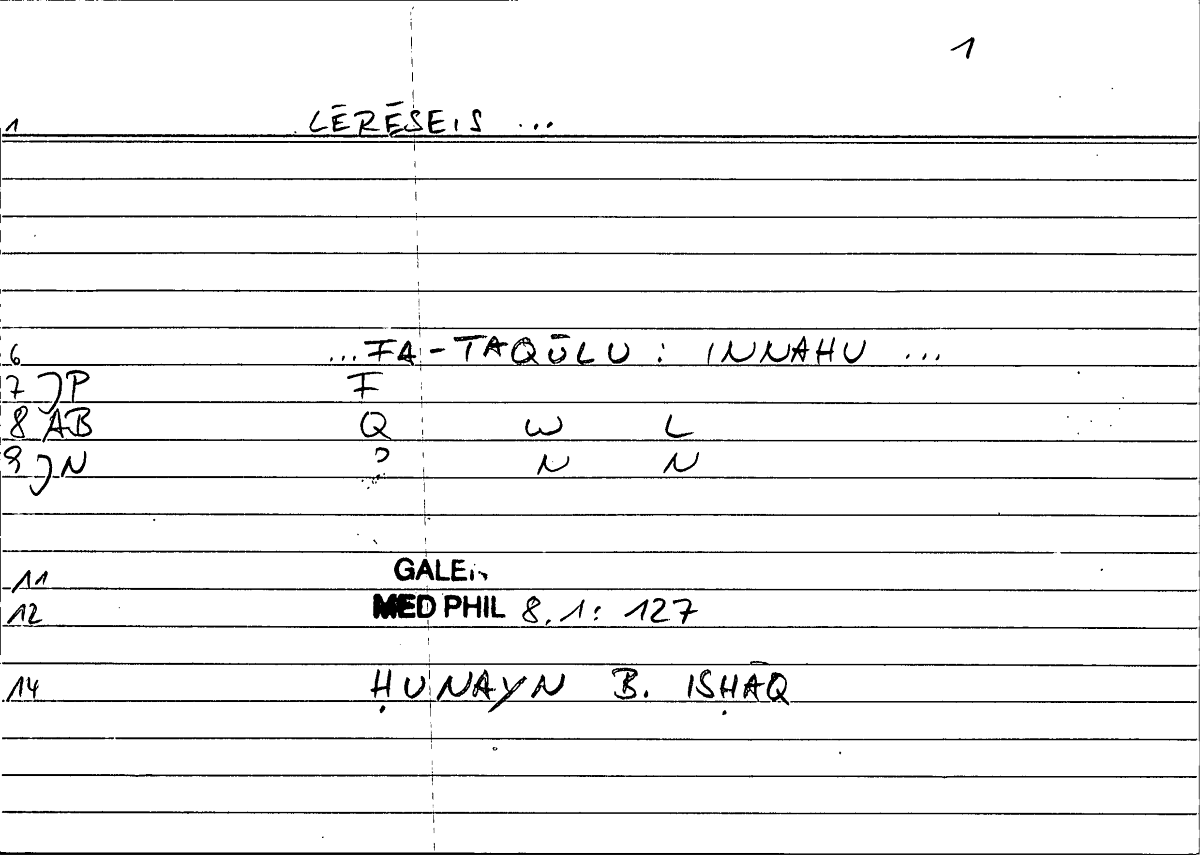 1
1 LĒRĒSEIS ...
6 ...FA-TAQŪLU : INNAHU ...
7 JP F
8 AB Q W L
9 JN ʾ N N
11 GALEN
12 MED PHIL 8.1: 127
14 ḤUNAYN B. ISḤĀQ